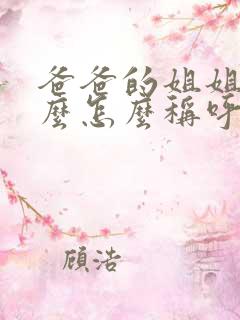 爸爸的姐姐
麼怎麼稱呼
顾浩